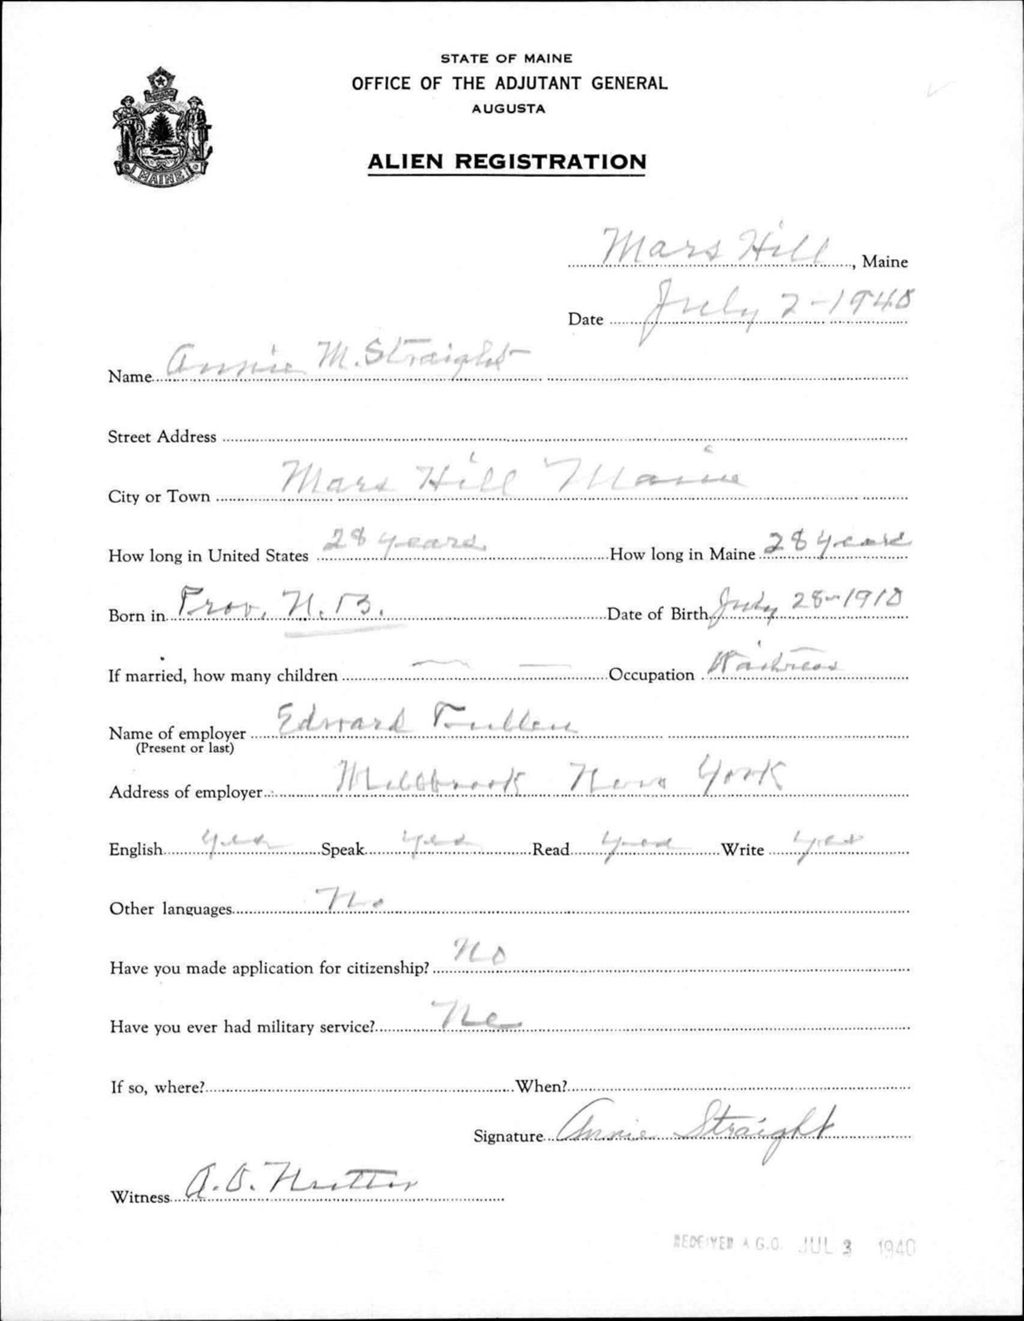 STATE OF MAINE
OFFICE OF THE ADJUTANT GENERAL
AUGUSTA
MAINE
ALIEN REGISTRATION
Mars Hill, Maine
Date July 2-1940
Name Annie M. Straight
Street Address
City or Town Mars Hill Maine
How long in United States 28 years How long in Maine 28 years
Born in Prov. N.B. Date of Birth July 28-1910
If married, how many children — — Occupation Waitress
Name of employer Edward
(Present or last)
Address of employer Millbrook New York
English yes Speak yes Read yes Write yes
Other languages No
Have you made application for citizenship? No
Have you ever had military service? No
If so, where? When?
Signature Annie Straight
Witness A.O.
RECEIVED A.G.O. JUL 3 1940